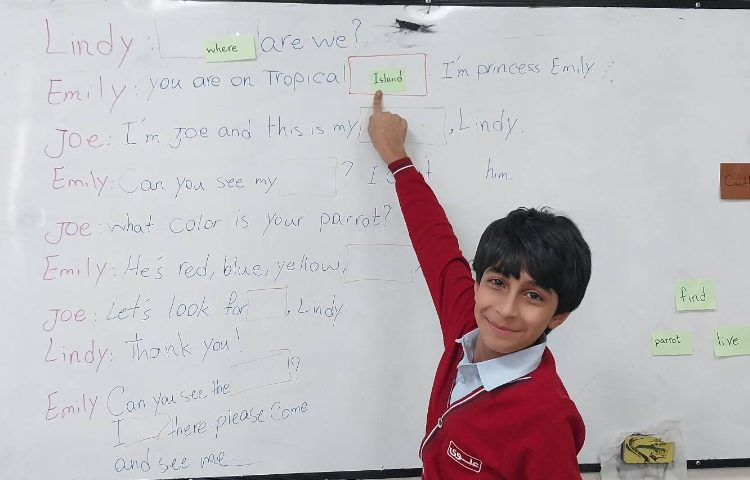 Lindy: where are we?
Emily: you are on Tropical Island. I'm princess Emily.
Joe: I'm Joe and this is my , Lindy.
Emily: Can you see my ? I him.
Joe: what color is your parrot?
Emily: He's red, blue, yellow,
Joe: Let's look for , Lindy
Lindy: Thank you!
Emily Can you see the ?
I there please come
and see me
find
parrot
live
علوی